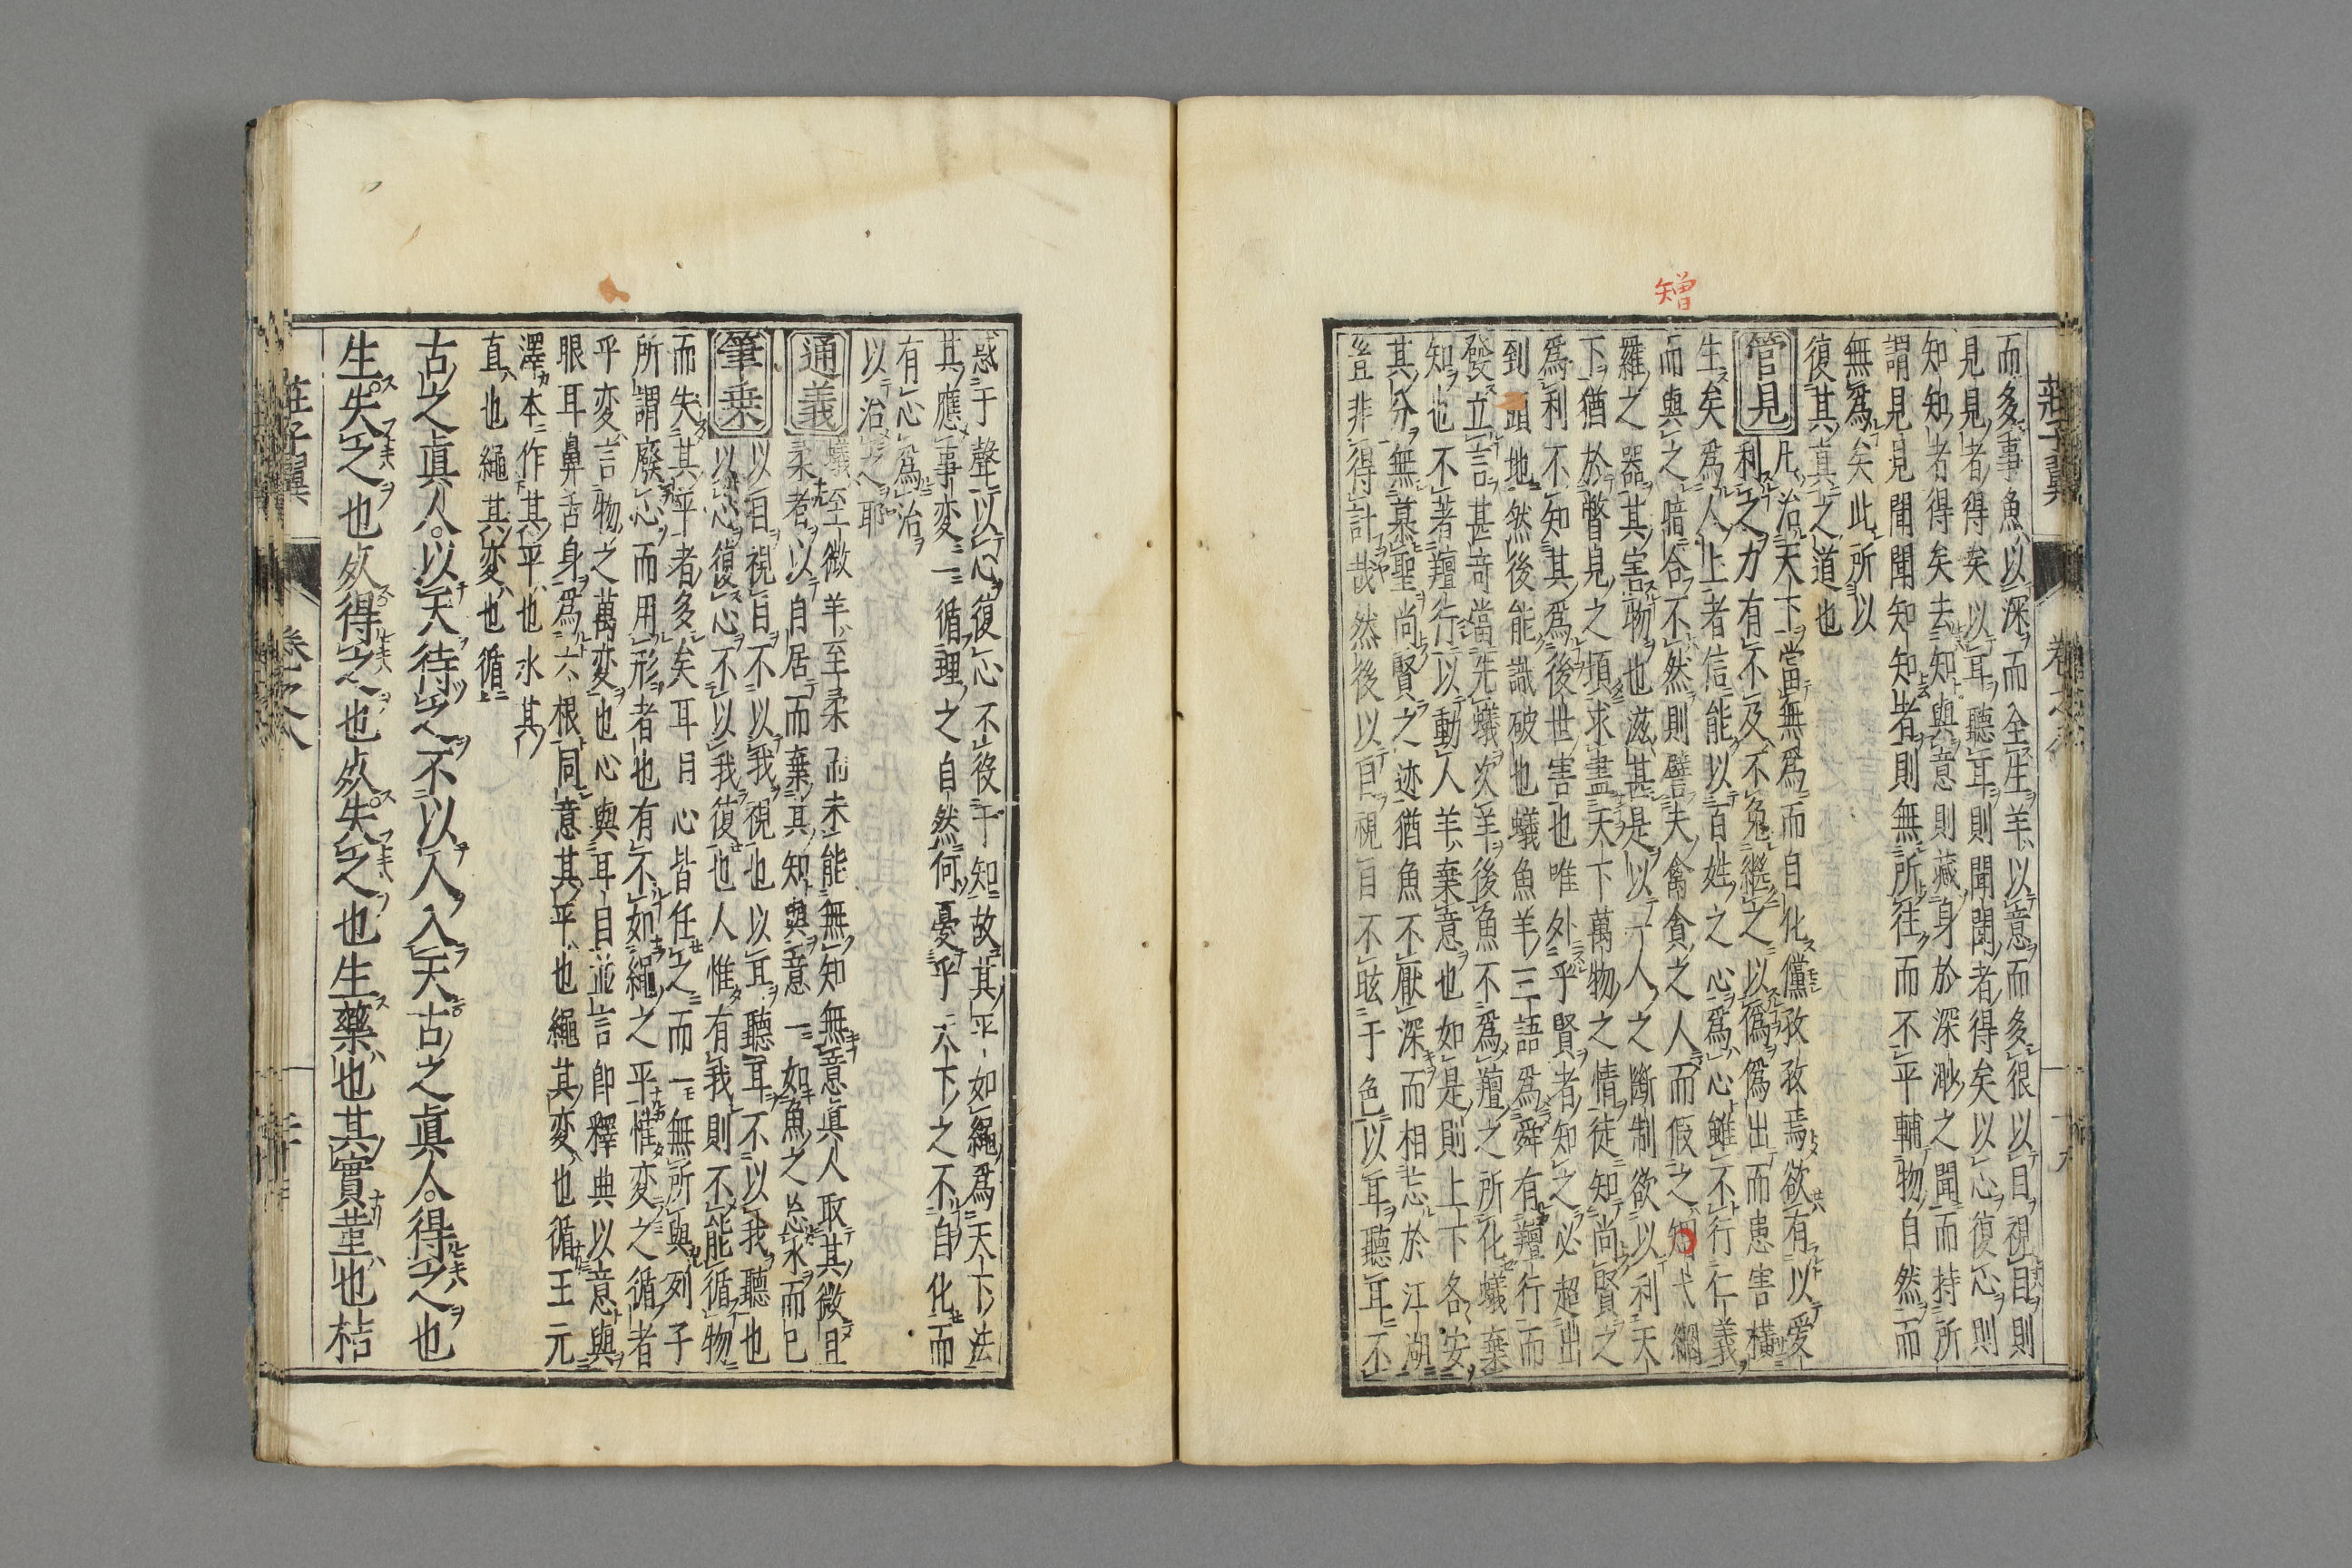 莊子翼 卷之八 十九
矰
而多事魚以深而全生羊以意而多很以目視目則
見見者得矣以耳聽耳則聞聞者得矣以心復心則
知知者得矣去知與意則藏身於深渺之聞而持所
謂見見聞聞知知者則無所往而不平輔物自然而
無爲矣此所以
復其真之道也
管見 凡治天下當無爲而自化儻孜孜焉欲有以愛
利之力有不及不免繼之以僞爲出而患害橫
生矣爲人上者信能以百姓之心爲心雖不行仁義
而與之暗合不然則譬夫禽貪之人而假之弋網
羅之器其害物也滋甚是以一人之斷制欲以利天
下猶於瞥見之頃求盡天下萬物之情徒知尚賢之
爲利不知其爲後世害也唯外乎賢者知之必超出
到頭地然後能識破也蟻魚羊三語爲舜有羶行而
發立言甚奇當先蟻次羊後魚不爲羶之所化蟻棄
知也不著羶行以動人羊棄意也如是則上下各安
其分無慕聖尚賢之迹猶魚不厭深而相忘於江湖
豈非得計哉然後以目視目不眩于色以耳聽耳不
惑于聲以心復心不役于知故其平如繩爲天下法
其應事変一循理之自然何憂乎天下之不自化而
有心爲治
以治之耶
通義 蟻至微羊至柔而未能無知無意眞人取其微且
柔者以自居而棄其知與意一如魚之忘水而已
筆乗 以目視目不以我視也以耳聽耳不以我聽也
以心復心不以我復也人惟有我則不能循物
而失其平者多矣耳目心皆任之而一無所與列子
所謂廢心而用形者也有不如繩之平惟変之循者
乎変言物之萬変也心與耳目並言即釋典以意與
眼耳鼻舌身爲六根同意其平也繩其変也循王元
澤本作其平也水其
直也繩其変也循
古之眞人。以天待之不以人入天古之眞人。得之也
生。失之也死得之也死。失之也生藥也其實菫也桔
莊子翼 卷之八 二十